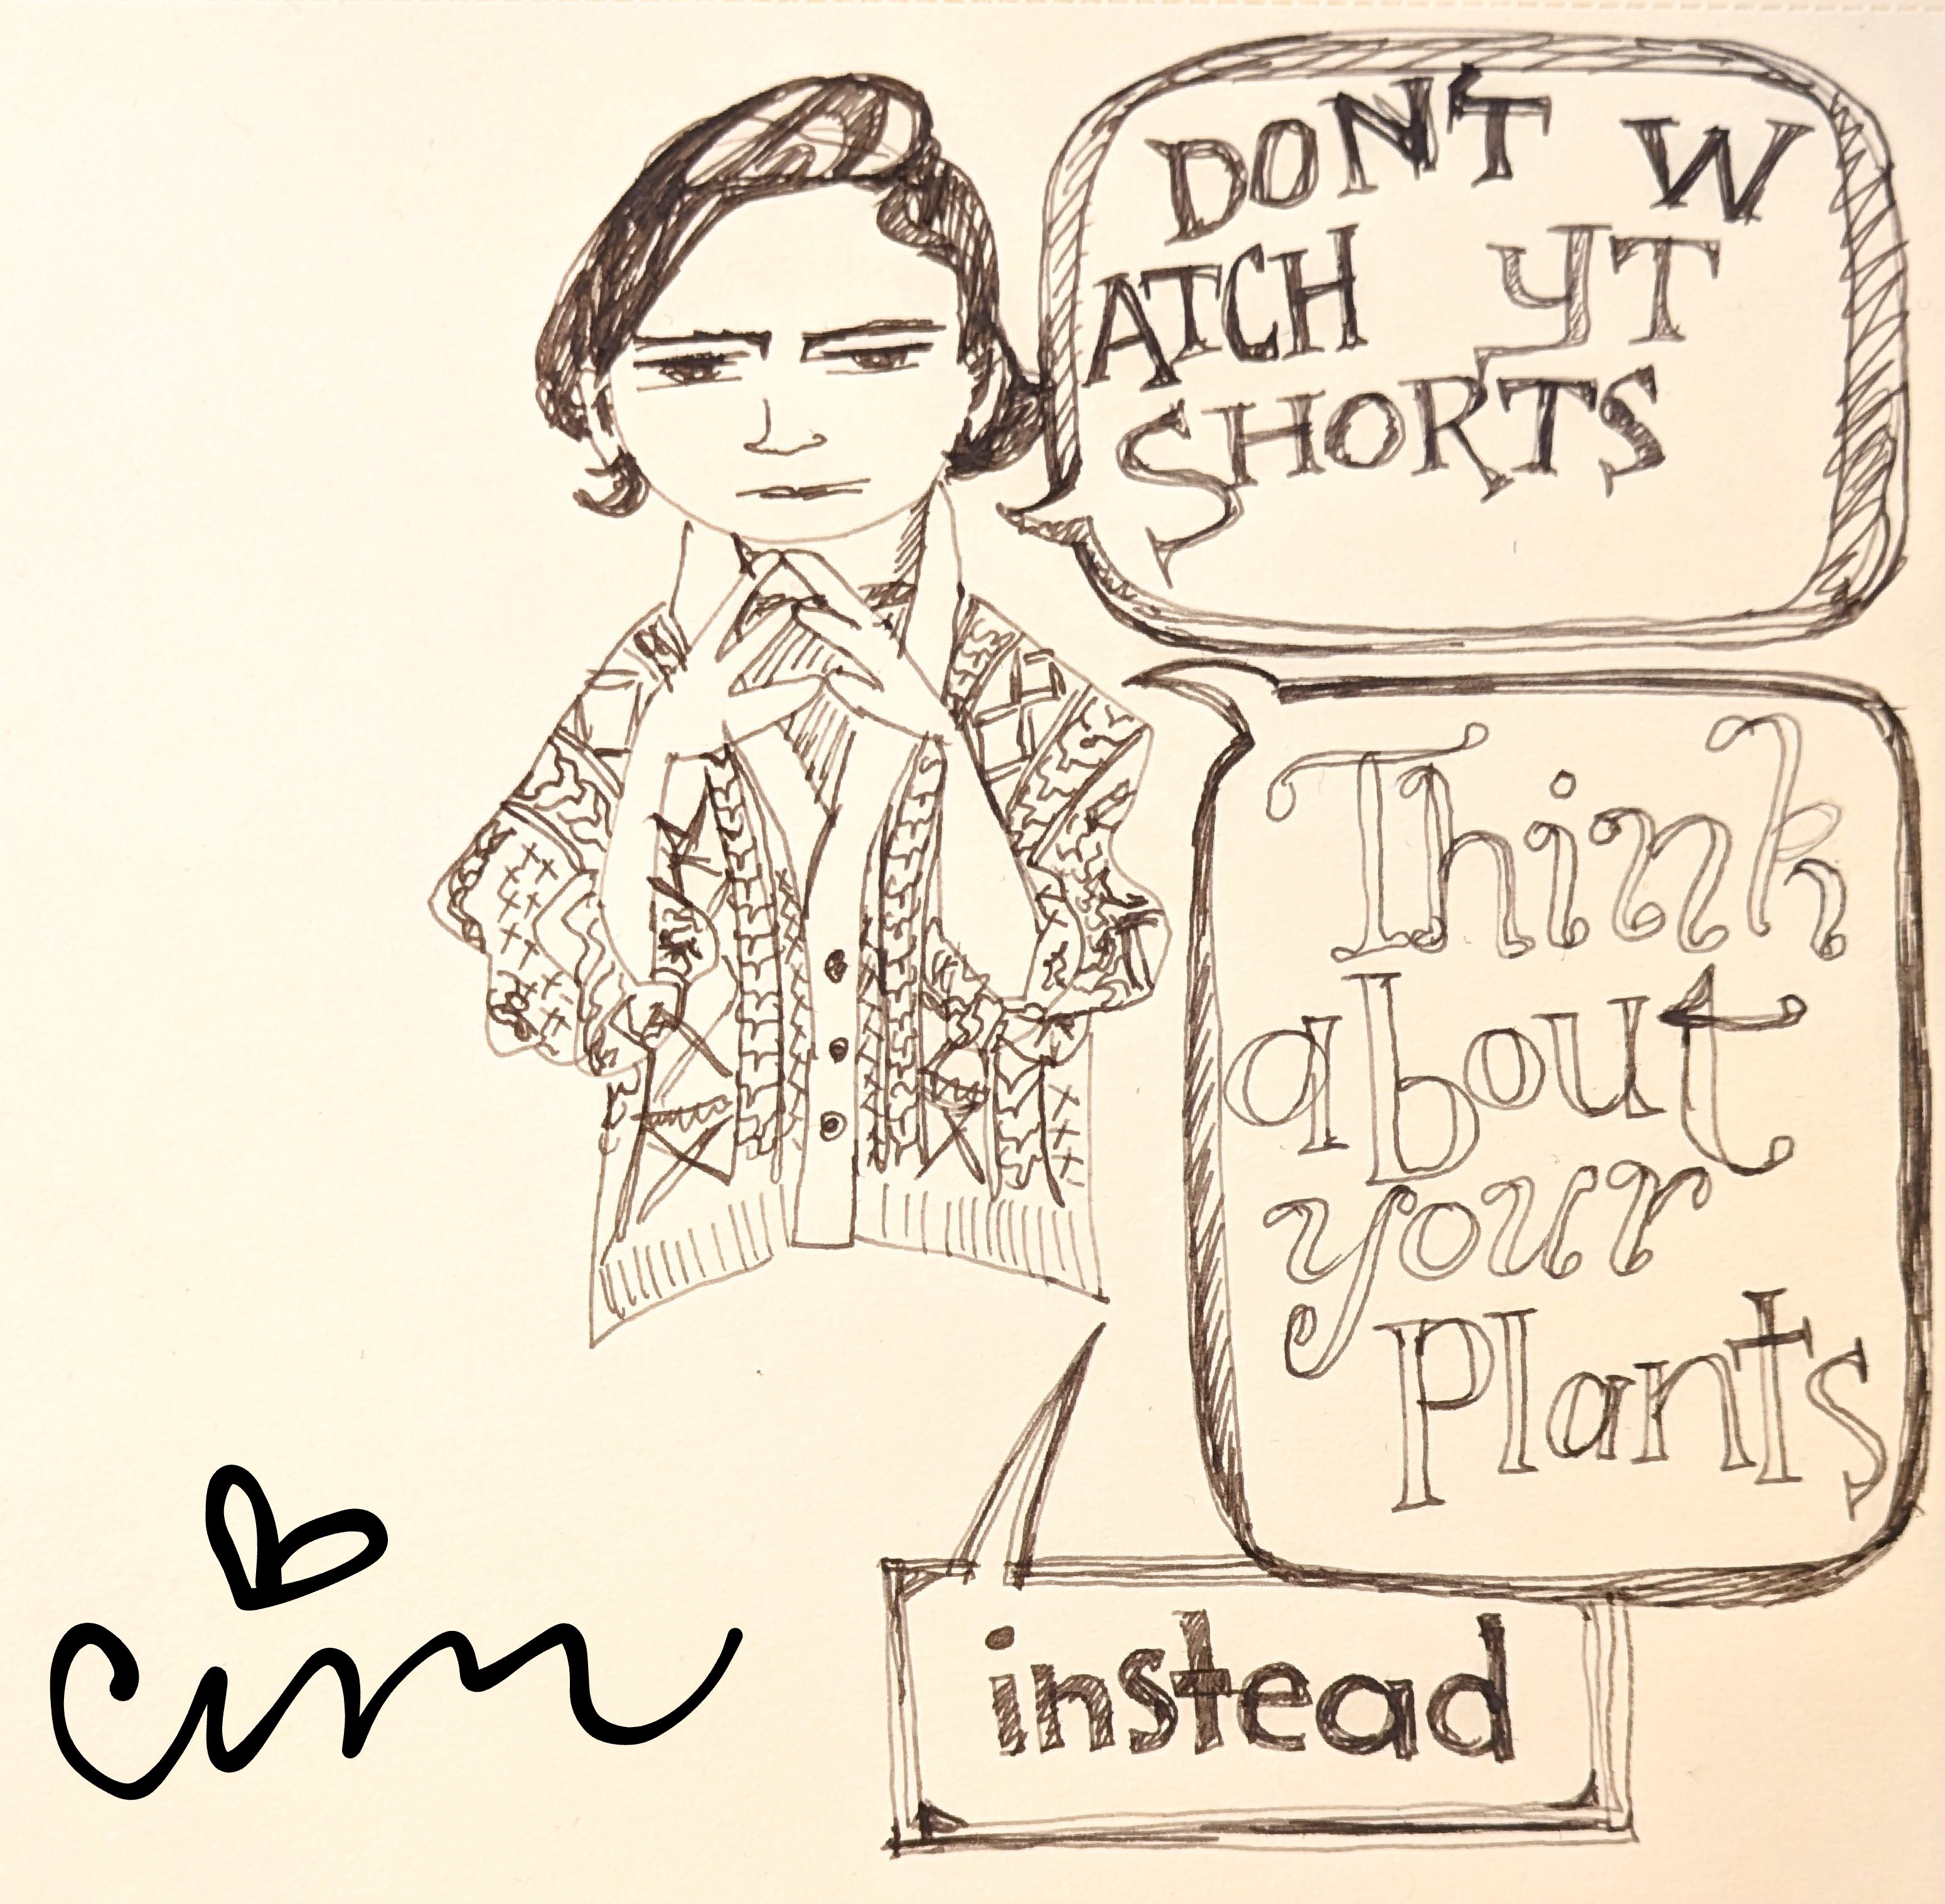 DON'T W
ATCH YT
SHORTS
Think
about
your
Plants
instead
cim